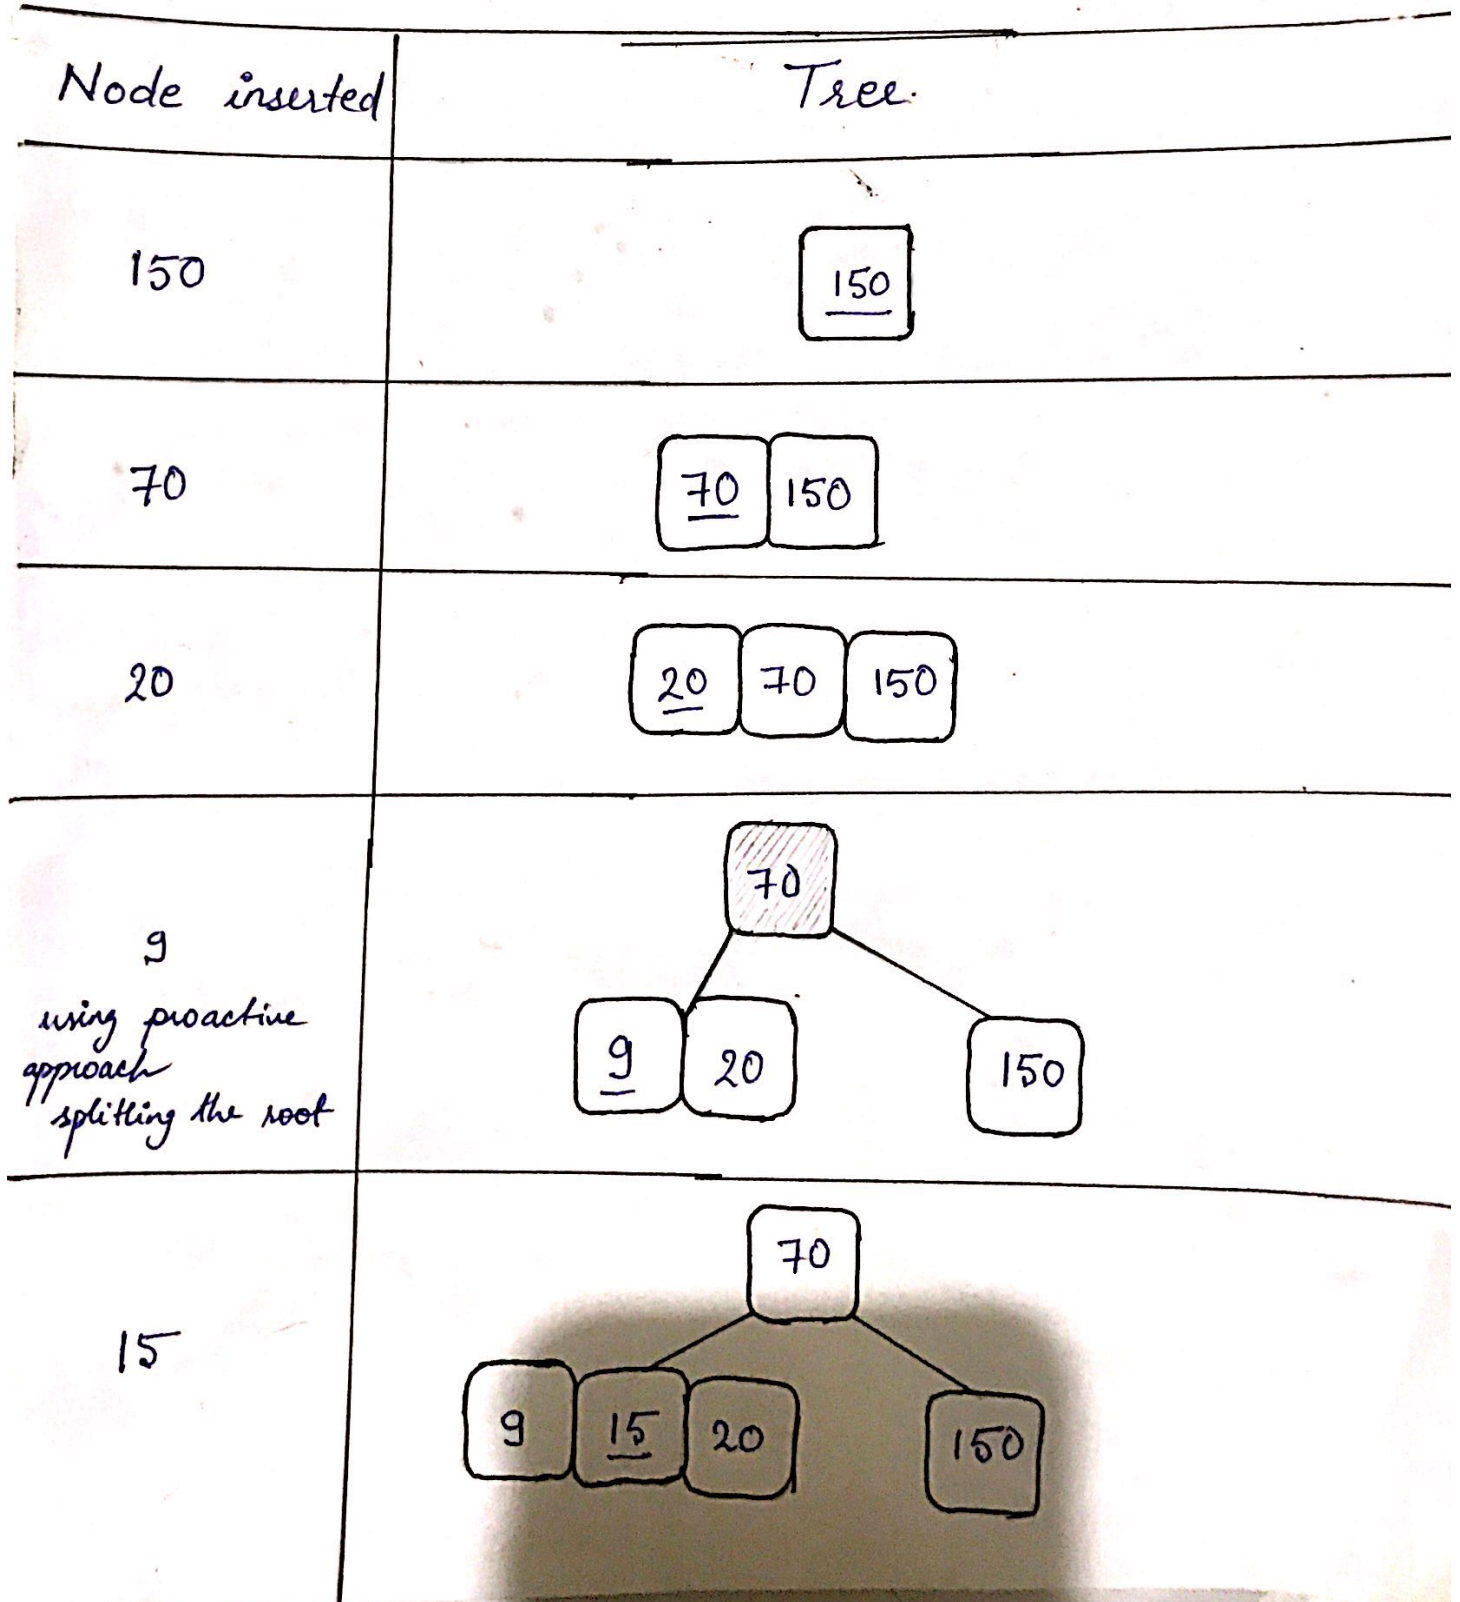 Node inserted Tree.
150 150
70 70 150
20 20 70 150
70
9
using proactive
approach
splitting the root
9 20 150
70
15
9 15 20 150